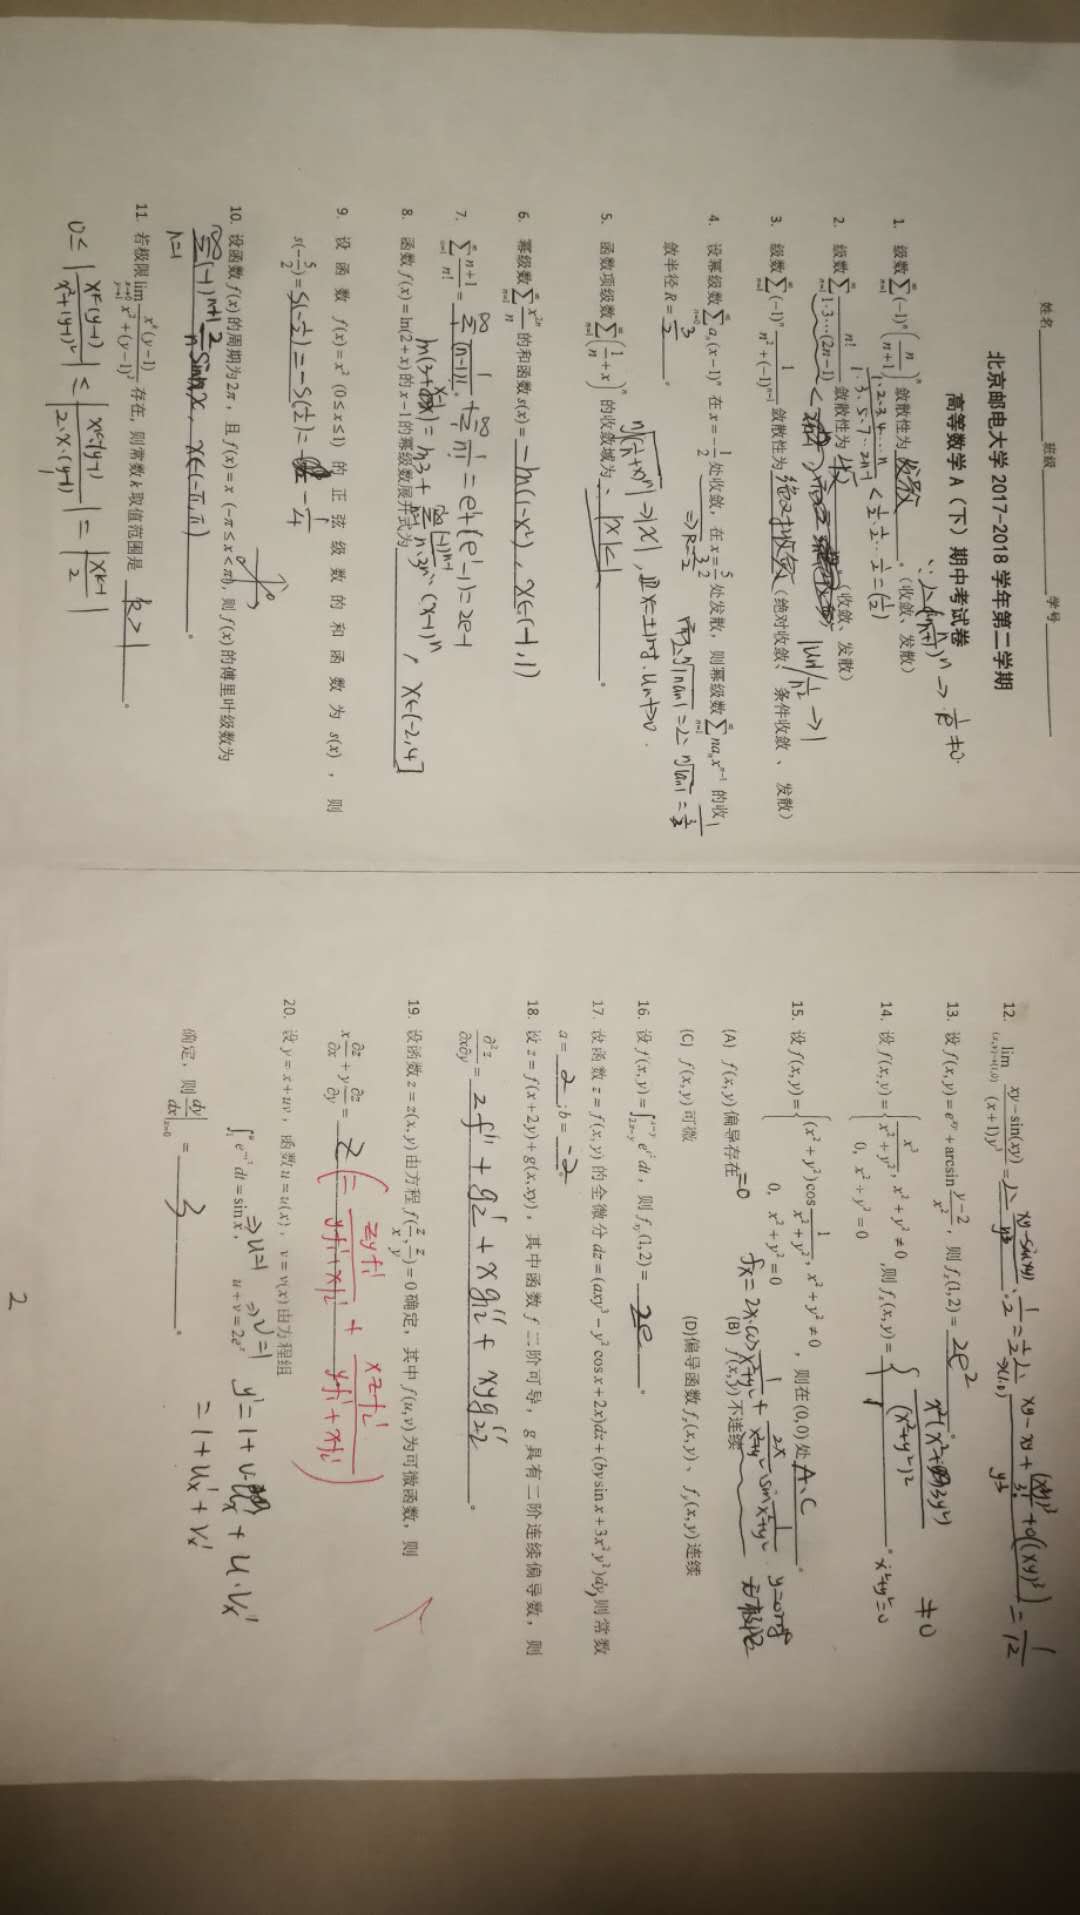 姓名____________班级____________学号____________
北京邮电大学 2017-2018 学年第二学期
高等数学 A（下）期中考试卷
1. 级数 ∑_{n=1}^{∞} (-1)^n (n/(n+1))^n 敛散性为 发散 。（收敛、发散）
1·2·3·4…n / 1·3·5·7…2n-1 < 1/2·1/2…1/2 = (1/2)
2. 级数 ∑_{n=1}^{∞} n!/(1·3⋯(2n-1)) 敛散性为 收 。（收敛、发散）
|Un| / (1/n²) → 1
3. 级数 ∑_{n=1}^{∞} (-1)^n 1/(n²+(-1)^{n-1}) 敛散性为 绝对收敛 （绝对收敛、 条件收敛 、 发散）
4. 设幂级数 ∑_{n=0}^{∞} a_n(x-1)^n 在 x=-1/2 处收敛，在 x=5/2 处发散，则幂级数 ∑_{n=1}^{∞} na_n x^{n-1} 的收
⇒R=3/2
敛半径 R= 3/2 。
5. 函数项级数 ∑_{n=1}^{∞} (1/n + x)^n 的收敛域为 ∴ |x|<1 。
6. 幂级数 ∑_{n=1}^{∞} x^{2n}/n 的和函数 s(x)= -ln(1-x²) , x∈(-1,1)
7. ∑_{n=1}^{∞} (n+1)/n! = ∑_{1}^{∞} 1/(n-1)! + ∑_{1}^{∞} 1/n! = e¹+(e¹-1)=2e-1
ln(3+x-1) = ln3 + ∑_{n=1}^{∞} (-1)^{n-1}/(n·3^n) · (x-1)^n
8. 函数 f(x)=ln(2+x) 的 x-1 的幂级数展开式为____________ , x∈(-2,4]
9. 设函数 f(x)=x² (0≤x≤1) 的正弦级数的和函数为 s(x) ，则
s(-5/2)= S(-1/2) = -S(1/2) = -1/4
10. 设函数 f(x) 的周期为 2π ，且 f(x)=x (-π≤x<π), 则 f(x) 的傅里叶级数为
∑_{n=1}^{∞} (-1)^{n+1} 2/n sin nx, x∈(-π,π) 。
11. 若极限 lim_{x→0 y→1} x^k(y-1)/(x²+(y-1)²) 存在, 则常数 k 取值范围是 k>1 。
0≤ |x^k(y-1)/(x²+(y-1)²)| ≤ |x^k·(y-1)/(2·x·(y-1))| = |x^{k-1}/2|
12. lim_{(x,y)→(1,0)} (xy-sin(xy))/((x+1)y³) = (xy-sin xy)/y³ · 1/2 = 1/2 (xy-xy+(xy)³/3!+o((xy)³))/y³ = 1/12
13. 设 f(x,y)=e^{xy}+arcsin (y-2)/x² ，则 f_x(1,2)= 2e² 。
14. 设 f(x,y)={ x³/(x²+y²), x²+y²≠0; 0, x²+y²=0 ,则 f_x(x,y)= { x²(x²+3y²)/(x²+y²)² ≠0; 1 x²+y²=0 。
15. 设 f(x,y)={ (x²+y²)cos 1/(x²+y²), x²+y²≠0; 0, x²+y²=0 ，则在(0,0)处 A、C 。
=0 fx=2x·cos 1/(x²+y²) + 2x/(x²+y²) ·sin 1/(x²+y²) y=0时 无极限
(A) f(x,y) 偏导存在 (B) f(x,y) 不连续
(C) f(x,y) 可微 (D)偏导函数 f_x(x,y) 、 f_y(x,y) 连续
16. 设 f(x,y)=∫_{2x-y}^{x-y} e^{t²}dt ，则 f_{xy}(1,2)= 2e 。
17. 设函数 z=f(x,y) 的全微分 dz=(axy³-y²cosx+2x)dx+(by sinx+3x²y²)dy, 则常数
a= 2 ;b= -2 。
18. 设 z=f(x+2y)+g(x,xy) ，其中函数 f 二阶可导，g 具有二阶连续偏导数，则
∂²z/∂x∂y = 2f'' + g₂' + x g₁₂'' + xy g₂₂'' 。
19. 设函数 z=z(x,y) 由方程 f(z/x, z/y)=0 确定，其中 f(u,v) 为可微函数，则
x ∂z/∂x + y ∂z/∂y = z (= zyf₁'/(yf₁'+xf₂') + xzf₂'/(yf₁'+xf₂'))
20. 设 y=x+uv ，函数 u=u(x) ，v=v(x) 由方程组
⇒u=1 ⇒v=1
∫_1^u e^{-t²}dt = sin x, u+v=2e^x y'=1+v·u_x'+u·v_x'
=1+u_x'+v_x'
确定，则 dy/dx|_{x=0} = 3 。
2